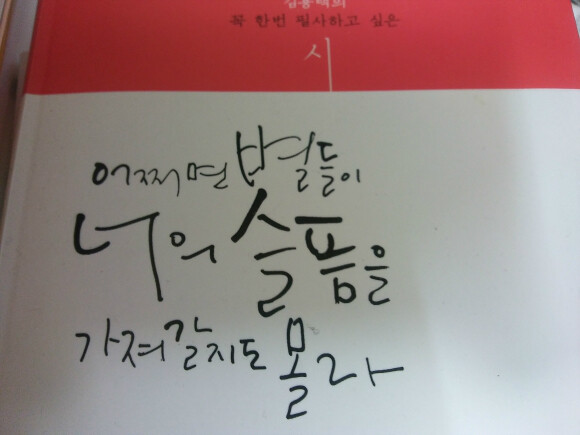 김용택의
꼭 한번 필사하고 싶은
시
어쩌면 별들이
너의 슬픔을
가져갈지도 몰라